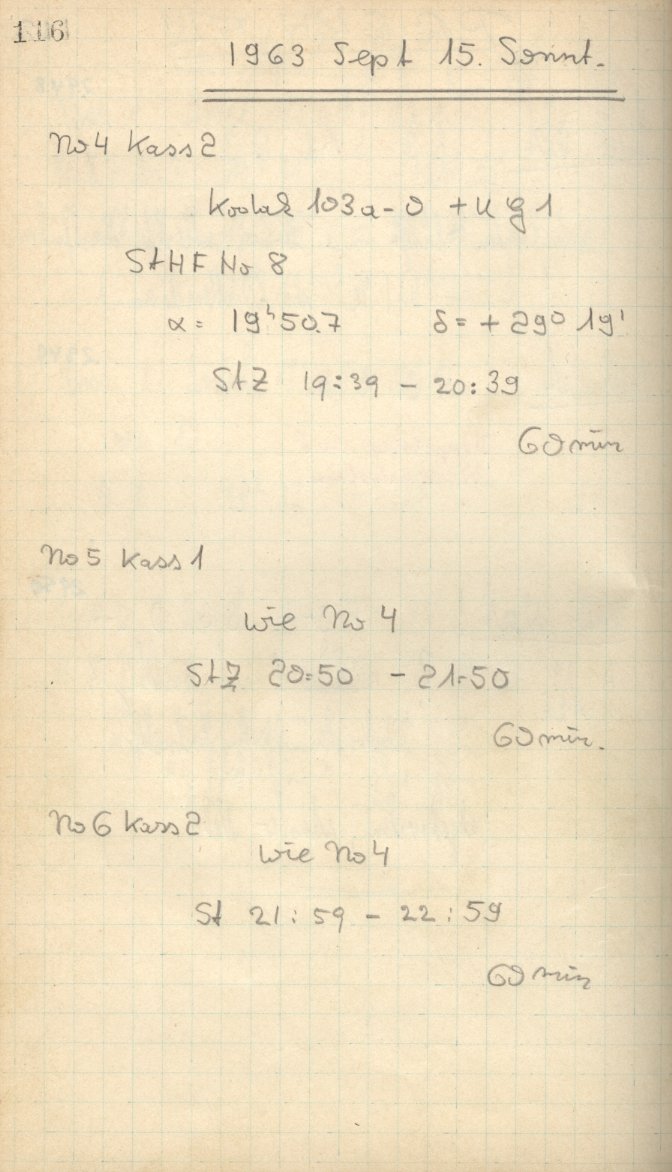 116
1963 Sept 15. Sonnt.
No 4 Kass 2
Kodak 103a-O + UG1
StHF No 8
α = 19h 50.7 δ = + 29° 19'
StZ 19:39 - 20:39
60 min
No 5 Kass 1
wie No 4
StZ 20:50 - 21:50
60 min.
No 6 Kass 2
wie No 4
St 21:59 - 22:59
60 min